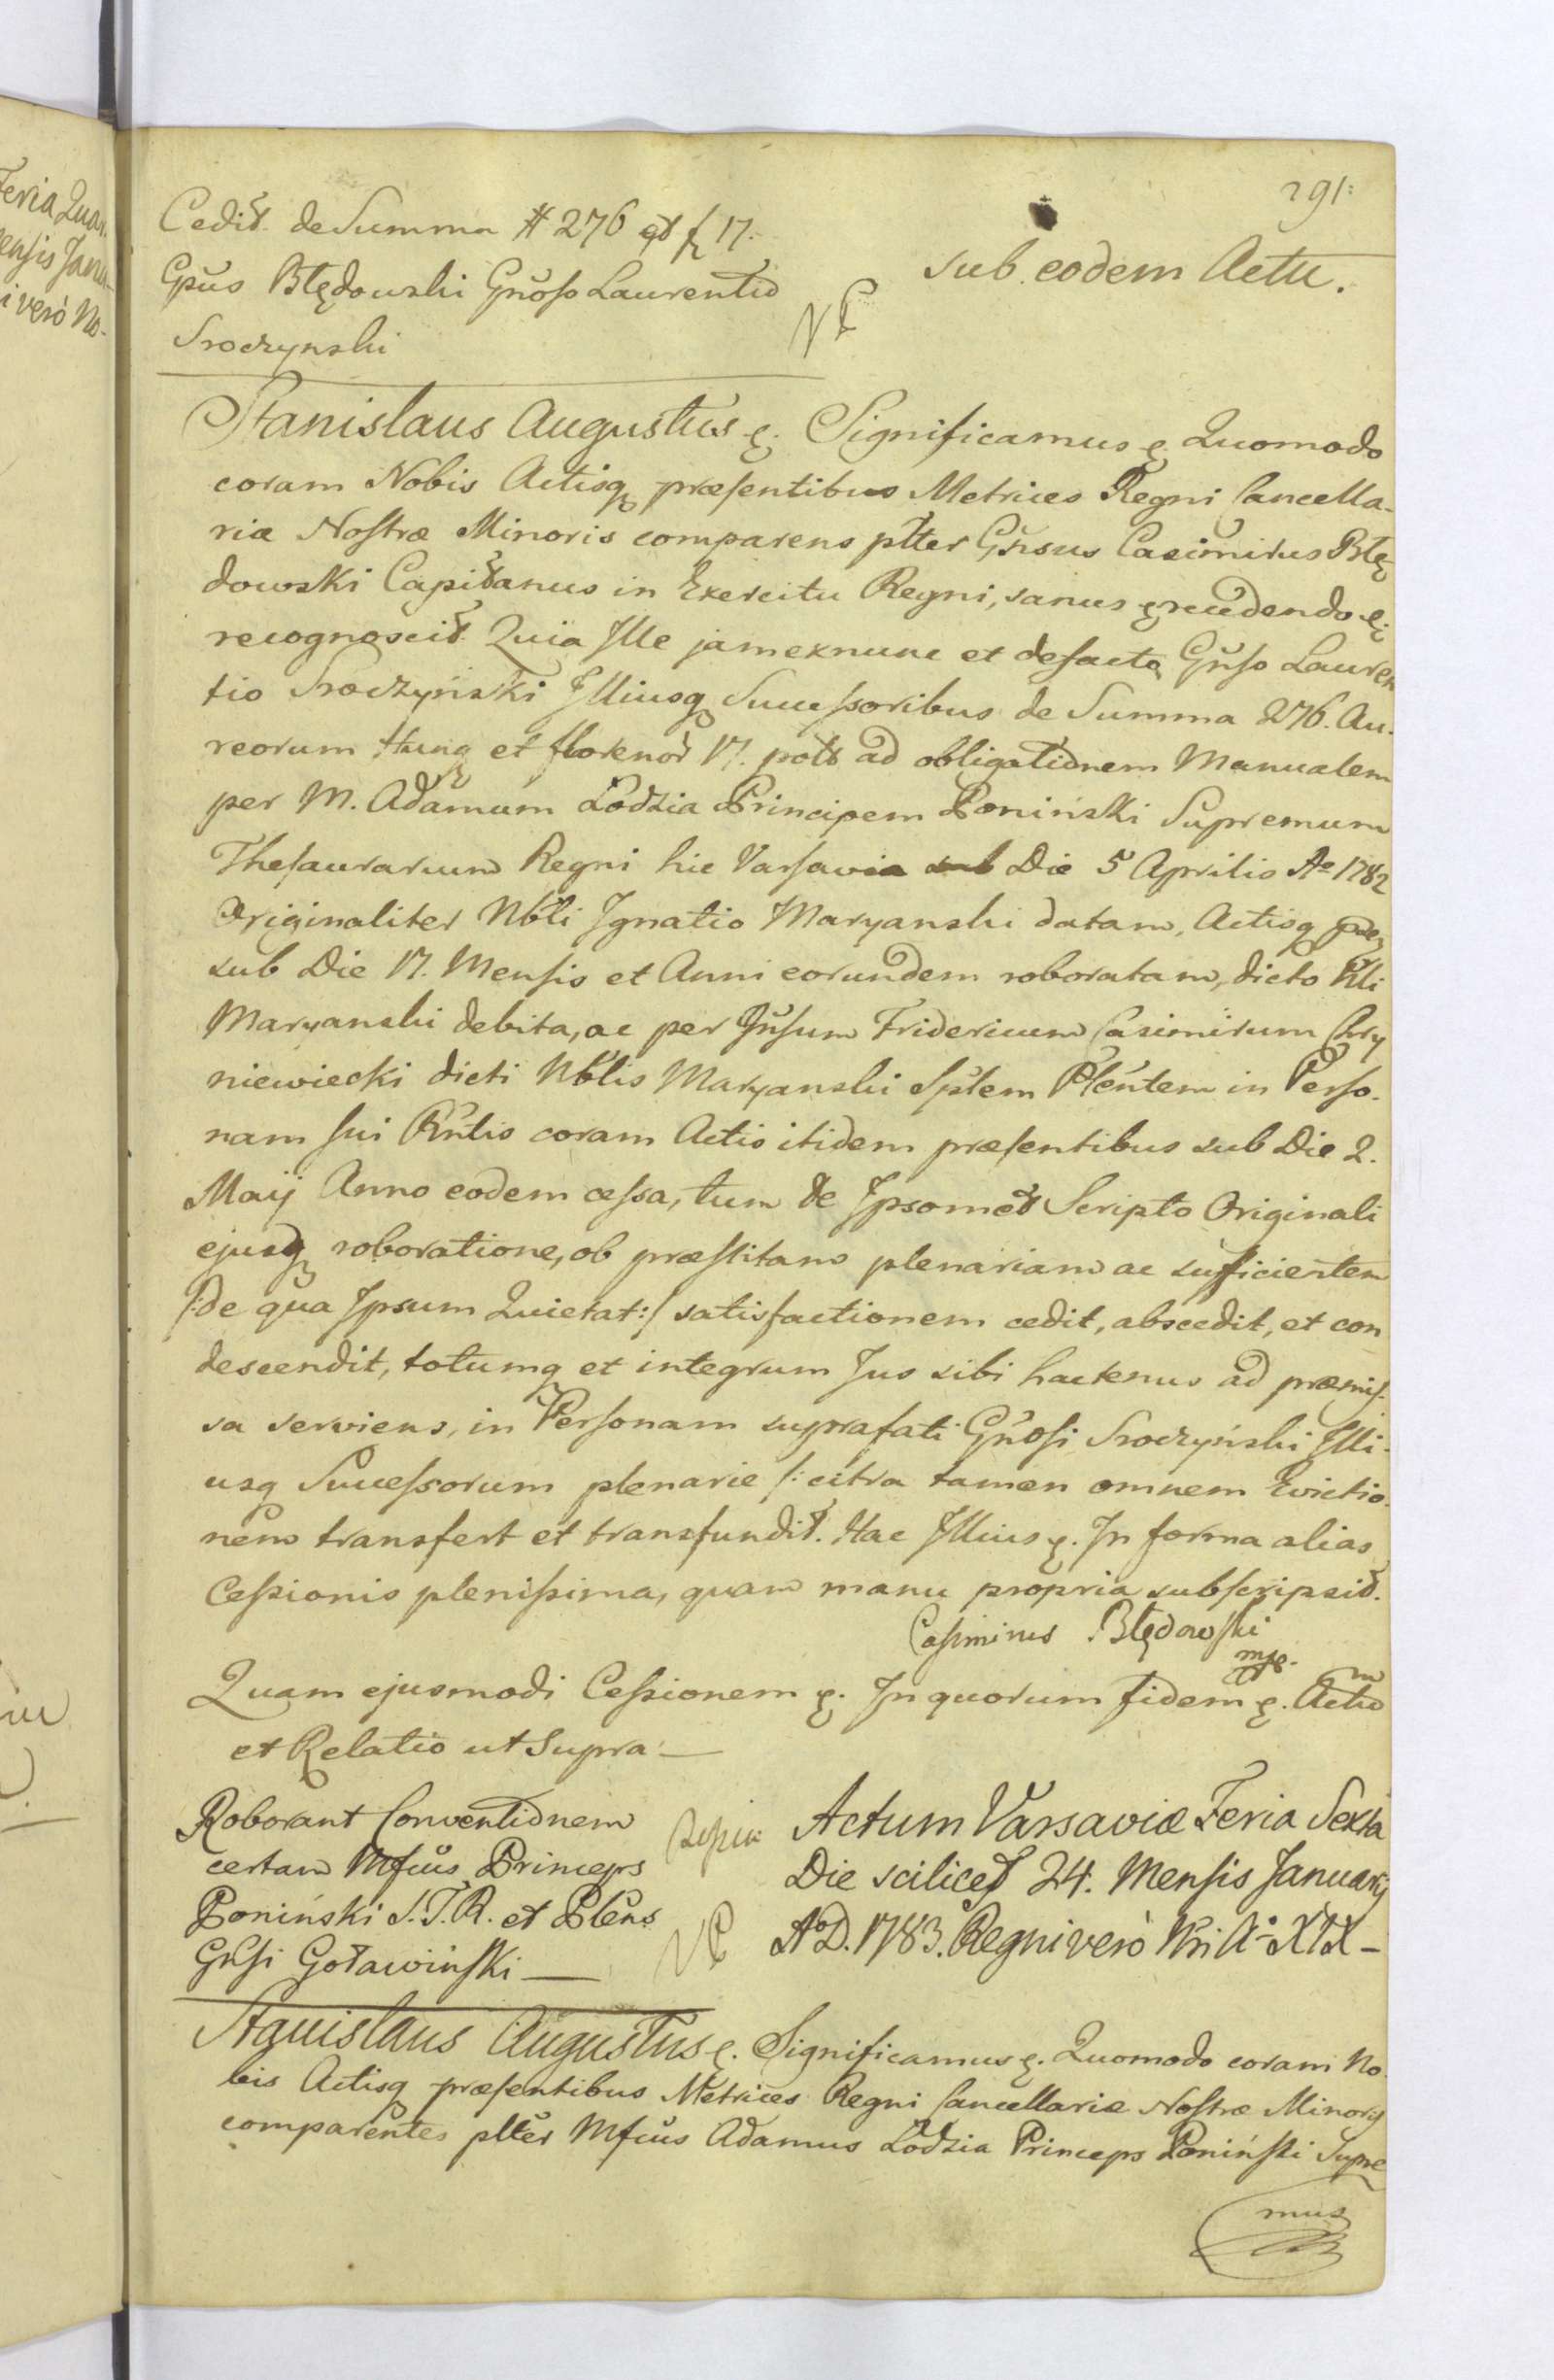 291:
Cedit de Summa # 276 et f 17.
Gnus Błędowski Gnoso Laurentio
Sroczynski
sub eodem Actu.
Stanislaus Augustus &. Significamus &. Quomodo
coram Nobis Actisq præsentibus Metrices Regni Cancella-
riæ Nostræ Minoris comparens pltter Gnsus Casimirus Błę
dowski Capitanus in Exercitu Regni, sanus &. recedendo &.
recognoscit. Quia Ille jam exnunc et defacto Gnso Lauren
tio Sroczyński Illiusq Successoribus de Summa 276. Au-
reorum Hung et florenor 17. polt ad obligationem Manualem
per M. Adamum Lodzia Principem Poniński Supremum
Thesaurarium Regni hic Varsaviæ Die 5 Aprilis Ao 1782
Originaliter Nbli Ignatio Maryanski datam, Actisq
sub Die 17. Mensis et Anni eorundem roboratam, dicto Nli
Maryanski debita, ac per Gnsum Fridericum Casimirum Chry
niewiecki dicti Nblis Maryanski Splem Plentem in Perso-
nam sui Rntis coram Actis itidem præsentibus sub Die 2.
Maij Anno eodem cessa, tum de Ipsomet Scripto Originali
ejusq roboratione, ob præstitam plenariam ac sufficientem
/:de qua Ipsum Quietat:/ satisfactionem cedit, abscedit, et con
descendit, totumq et integrum Jus sibi hactenus ad præmis-
sa serviens, in Personam suprafati Gnosi Sroczyński Illi-
usq Successorum plenarie /: citra tamen omnem Evictio-
nem transfert et transfundit. Hac Illius &. In forma alias
Cessionis plenissima, quam manu propria subscripsit.
Casimirus Błędowski
mpp.
Quam ejusmodi Cessionem &. In quorum fidem &. Actum
et Relatio ut Supra —
Roborant Conventionem
certam Mfcus Princeps
Poniński S.T.R. et Plens
Gnsi Goławiński —
Actum Varsaviæ Feria Sexta
Die scilicet 24. Mensis Januarij
Ao D. 1783. Regni vero Nri Ao XIX —
Stanislaus Augustus &. Significamus &. Quomodo coram No
bis Actisq præsentibus Metrices Regni Cancellariæ Nostræ Minoris
comparentes pltter Mfcus Adamus Lodzia Princeps Poniński Supre
mus